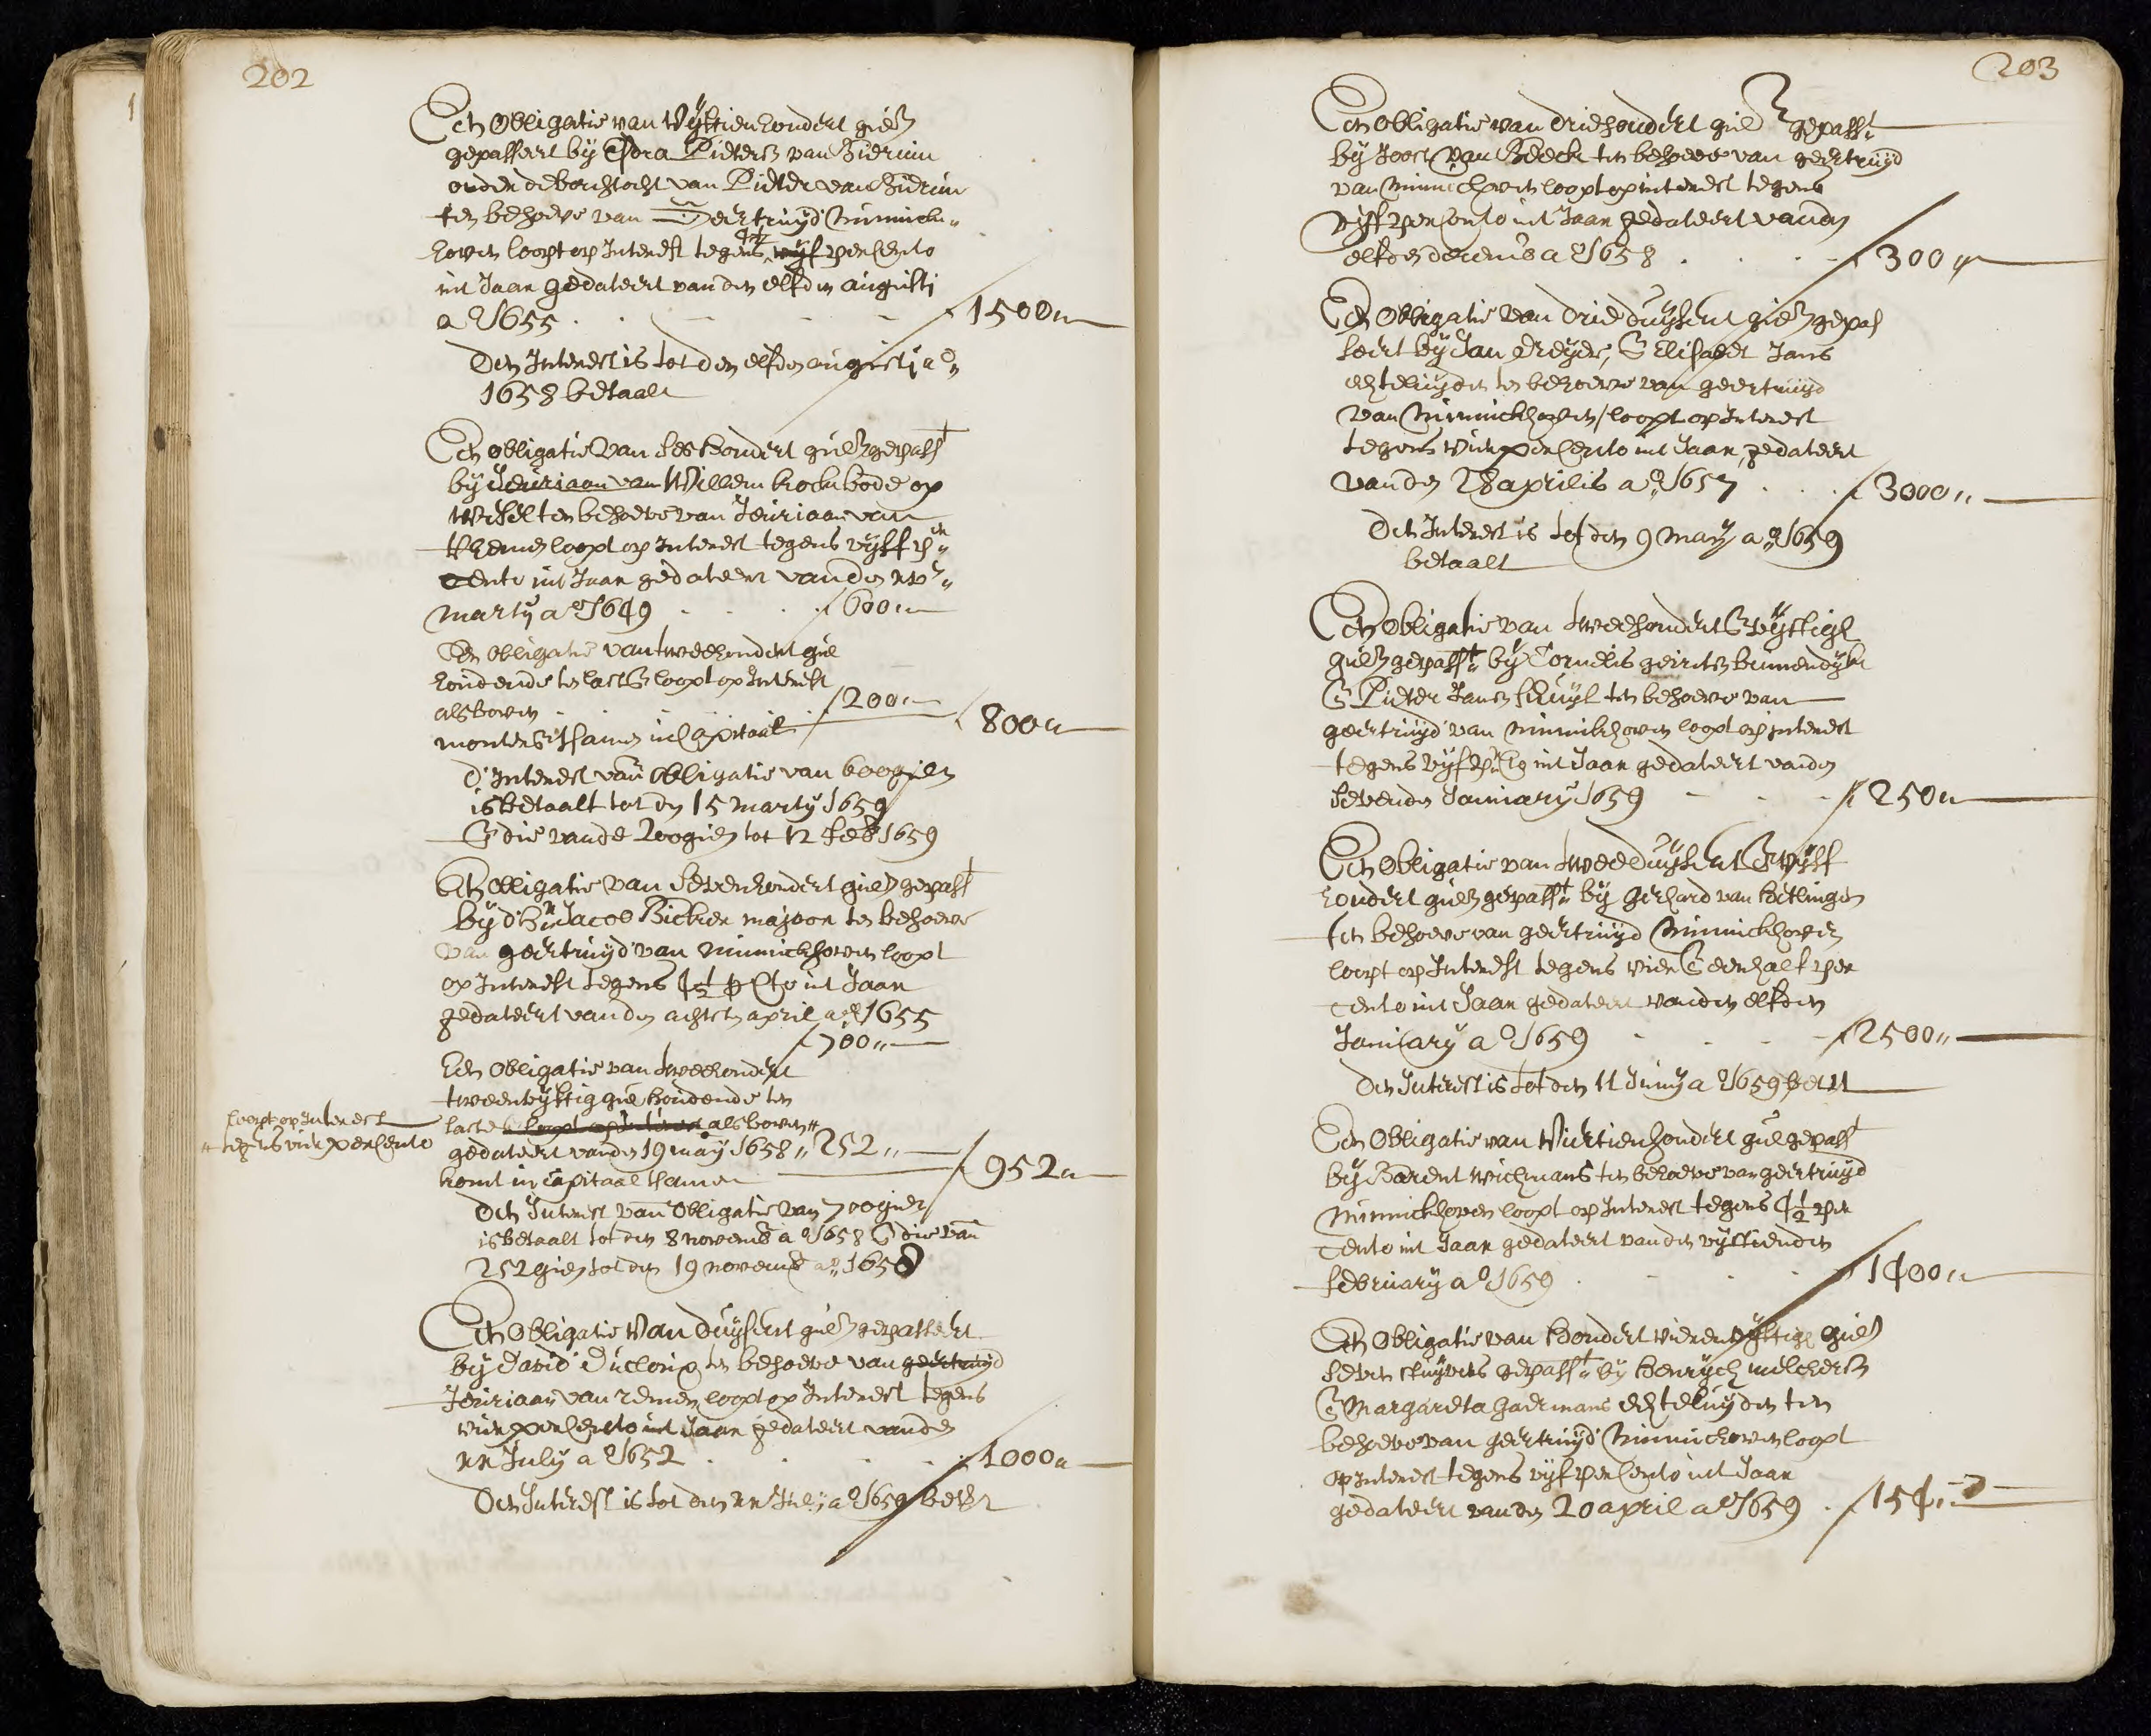 202
Een Obligatie van Vyftien hondert guls
gepasseert by Esdra Pieters van Zierim
onder de borchtocht van Pieter van Zierim
ten behoeve van Geertruyd Ninnick„
hoven loopt op Interest tegens 4½ vyf per Cento
int Jaar gedateert vanden elfden augusti
a° 1655 . . . . ƒ 1500„
Den Interest is tot den elfden augusti a°„
1658 betaalt
Een obligatie Van ses hondert guls gepasst
by Jeuriaan van Willem kock bode op
Wesel ten behoeve van Jeuriaan van
Rhemen loopt op Interest tegens vyff pr„
Cento int Jaar gedateert vanden xv„
marty a° 1649 . . . ƒ 600„
Een Obligatie van tweehondert gul
houdende ten last & loopt op Interest
als boven . . . . ƒ 200„
monteert samen in Capitaal ƒ 800„
d'Interest van Obligatie van 600 guls
is betaalt tot den 15 marty 1659
& die vande 200 guls tot 12 feb 1659
Een obligatie van Sevenhondert guls gepasst
by d'Hr Jacob Bicker majoor ten behoeve
van geertruyd van Ninnickhoven loopt
op Interest tegens 4½ p Cto int Jaar
gedateert vanden achtsten april a° 1655
ƒ 700„
Een Obligatie van tweehondert
tweenvyftig gul houdende ten
laste & loopt op Interest als boven„
loopt op Interest
„tegens vier per Cento
gedateert vanden 19 may 1658 „ 252 „
komt in Capitaal samen ƒ 952„
Den Interest van Obligatie van 700 guls
is betaalt tot den 8 novemb a° 1658 & die van
252 guls tot den 19 novemb a° 1658
Een Obligatie Van duysent guls gepasseert
by David Ducloux ten behoeve van geertruyd
Jeuriaan van remen loopt op Interest tegens
vier per Cento int Jaar gedateert vanden
xx July a° 1652 . . . . ƒ 1000„
Den Interest is tot den xx July a° 1659 bet
203
Een Obligatie van driehondert guls gepasst„
by Joost van Beeck ten behoeve van geertruyd
van Ninnickhoven loopt op interest tegens
vyff per Cento int Jaar gedateert vanden
elfden decemb a° 1658 . . . ƒ 300„
Een Obligatie van drie duysent guls gepas
seert by Jan Dreyer, & Elisabet Jans
echteluyden ten behoeve van geertruyd
van Ninnickhoven / loopt op Interest
tegens vier per Cento int Jaar, gedateert
vanden 28 aprilis a° 1657 . . . ƒ 3000„
Den Interest is tot den 9 may a° 1659
betaalt
Een Obligatie van tweehondert & vyftigh
guls gepasst„ by Cornelis geirits binnendyk
& Pieter Jans ten behoeve van
geertruyd van Ninnickhoven loopt op interest
tegens vyf pr Co int Jaar gedateert vanden
sevenden January 1659 . . . ƒ 250„
Een Obligatie van twee duysent & vyff
hondert guls gepasst„ by Gerhard van Hetlingen
ten behoeve van geertruyd Ninnickhoven
loopt op Interest tegens vier & een half per
Cento int Jaar gedateert vanden elfden
January a° 1659 . . . . ƒ 2500„
Den Interest is tot den 11 Juny a° 1659 bett
Een Obligatie van Viertienhondert gul gepasst
by Barent wichmans ten behoeve van geertruyd
Ninnickhoven loopt op Interest tegens 4½ per
Cento int Jaar gedateert vanden vyftienden
february a° 1659 . . . . ƒ 1400„
Een Obligatie van Hondert vierenvyftigh guls
seven stuyvers gepasst„ by Henrych melchers
& Margareta Haermans echteluyden ten
behoeve van geertruyd Ninnickoven loopt
op interest tegens vyf per Cento int Jaar
gedateert vanden 20 april a° 1659 . ƒ 154„7